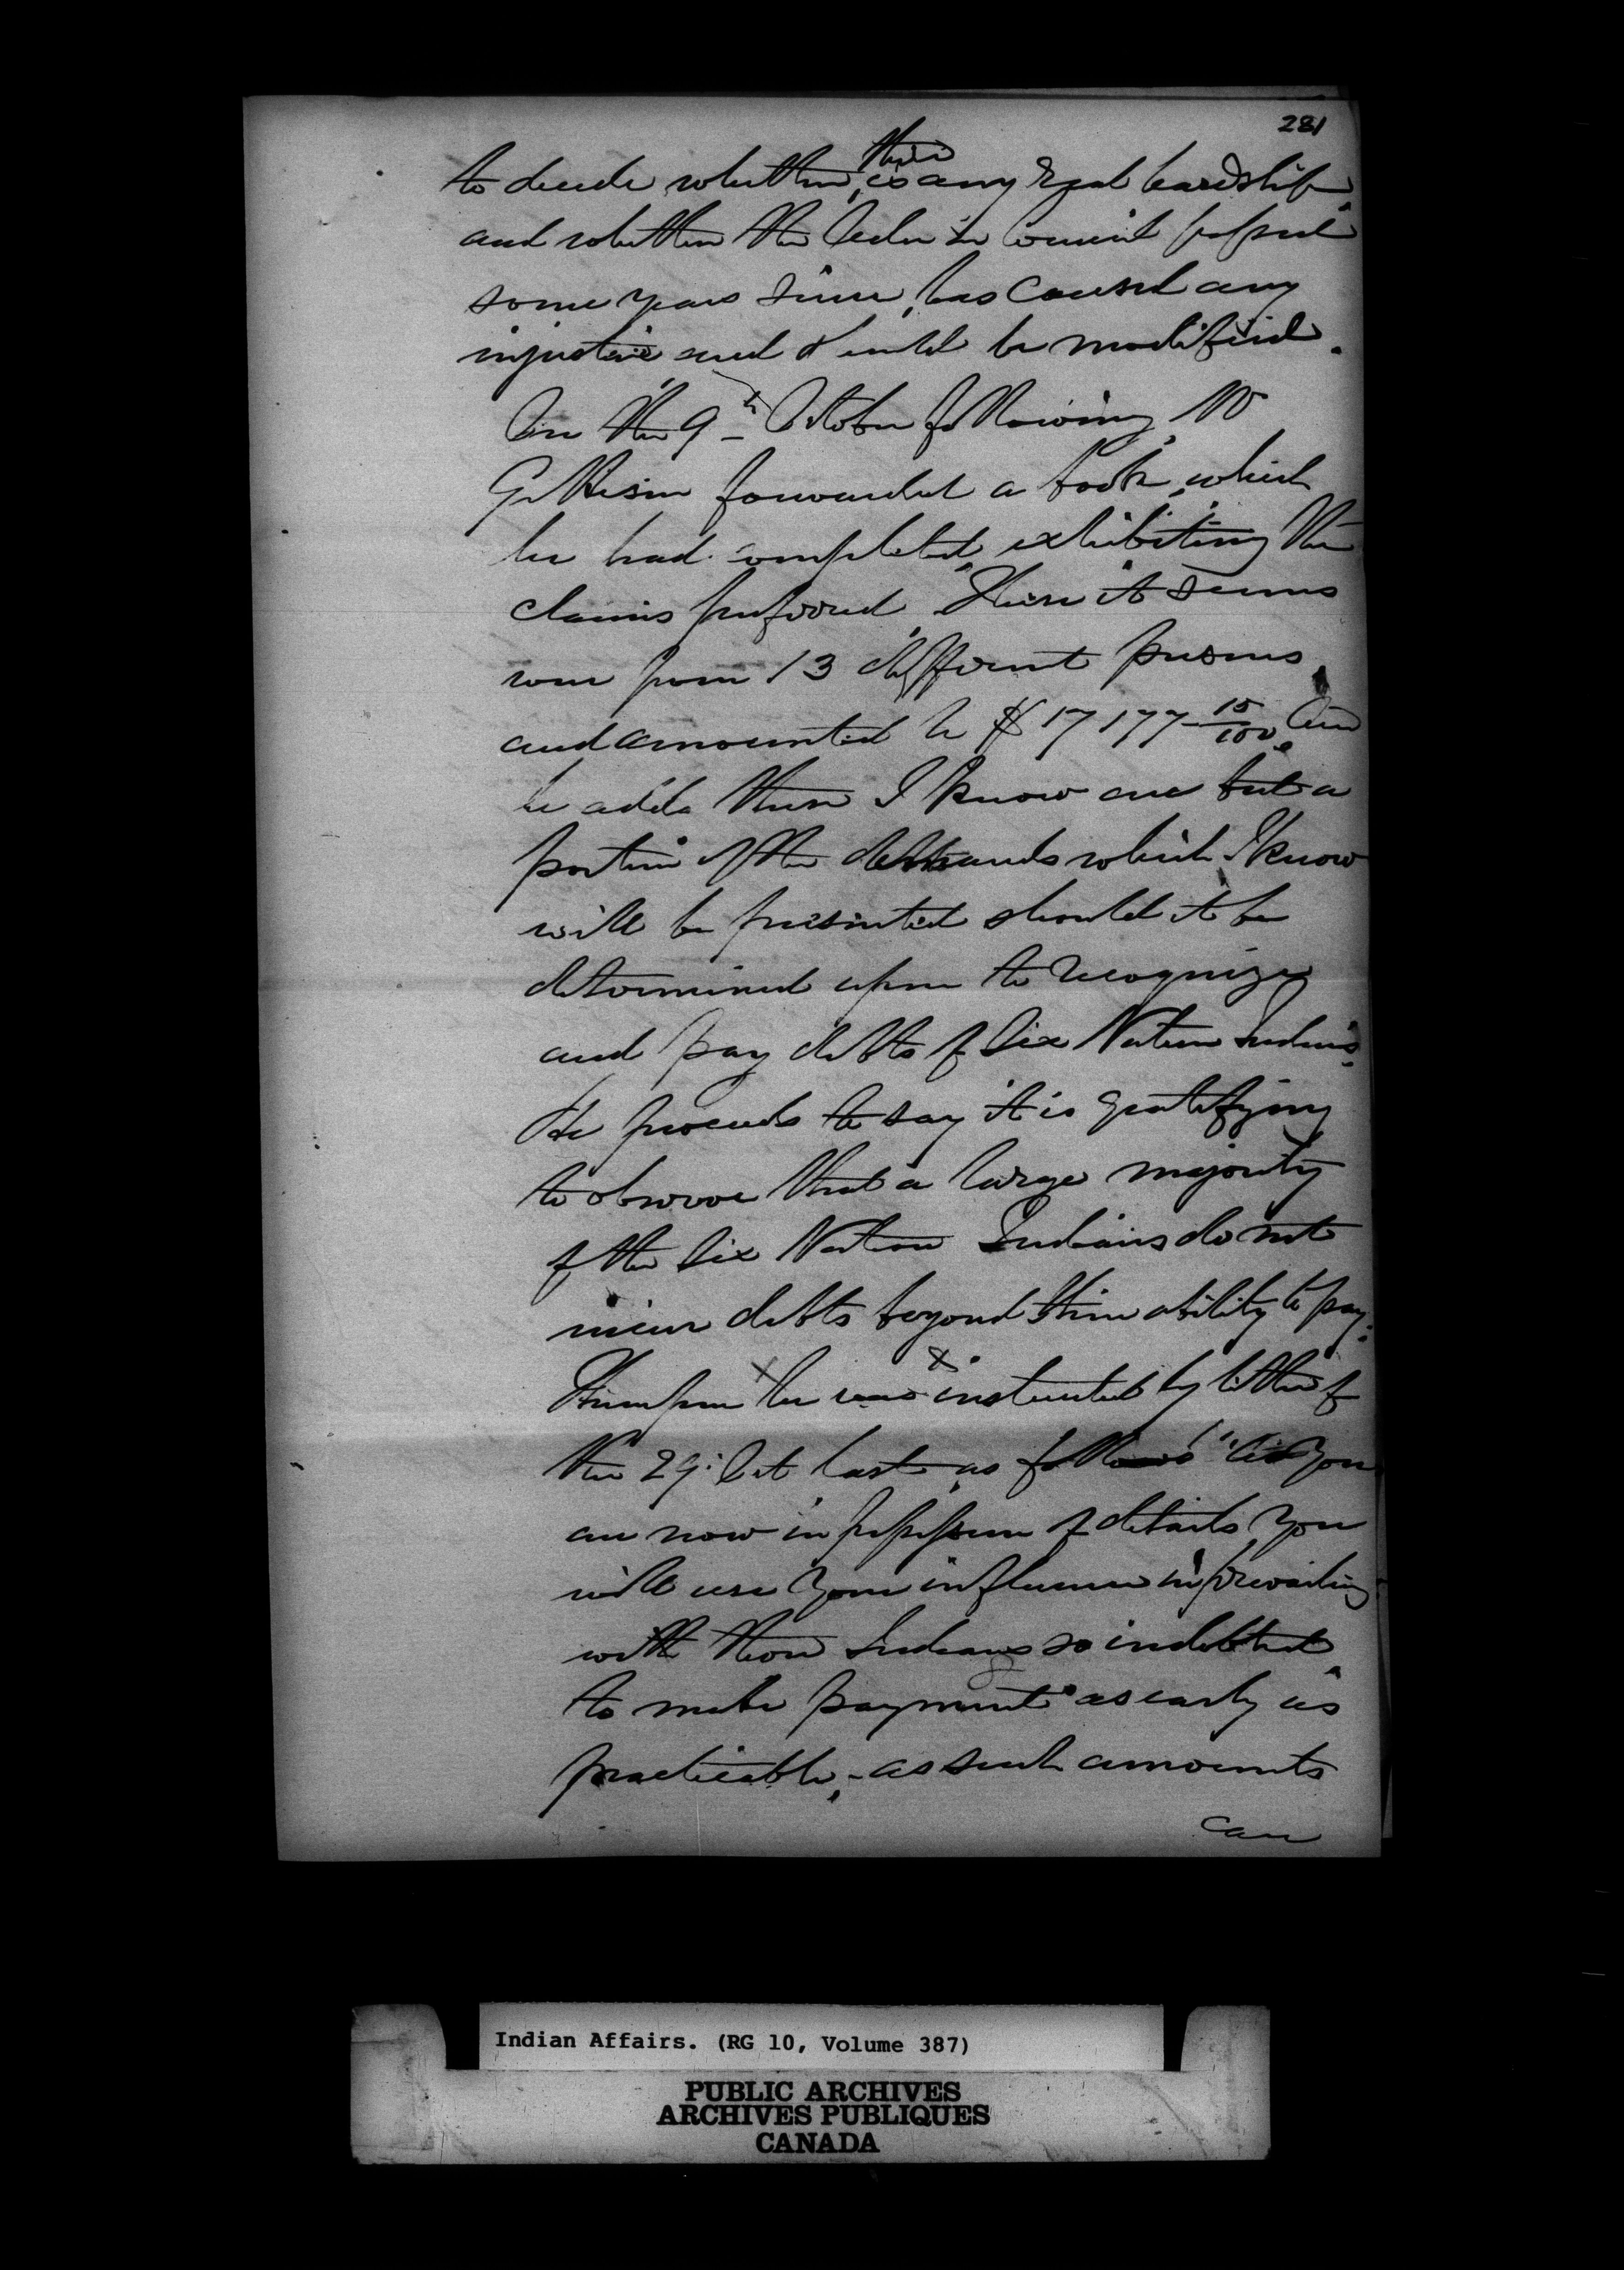 281
to decide whether there is any real hardship
and whether the Order in Council passed
some years since, has caused any
injustice and should be modified.
On the 9th October following Mr
Gilkison forwarded a book, which
he had completed, exhibiting the
claims preferred. These it seems
were from 13 different persons,
and amounted to $17177 15/100. And
he adds these I know are but a
portion of the demands which I know
will be presented should it be
determined upon to recognize
and pay debts of Six Nation Indians.
He proceeds to say it is gratifying
to observe that a large majority
of the Six Nation Indians do not
incur debts beyond their ability to pay.
Thereupon he was instructed by letter of
the 29: Oct last, as follows "As you
are now in possession of details you
will use your influence in prevailing
with those Indians so indebted,
to make payment as early as
practicable, - as such amounts
can
Indian Affairs. (RG 10, Volume 387)
PUBLIC ARCHIVES
ARCHIVES PUBLIQUES
CANADA